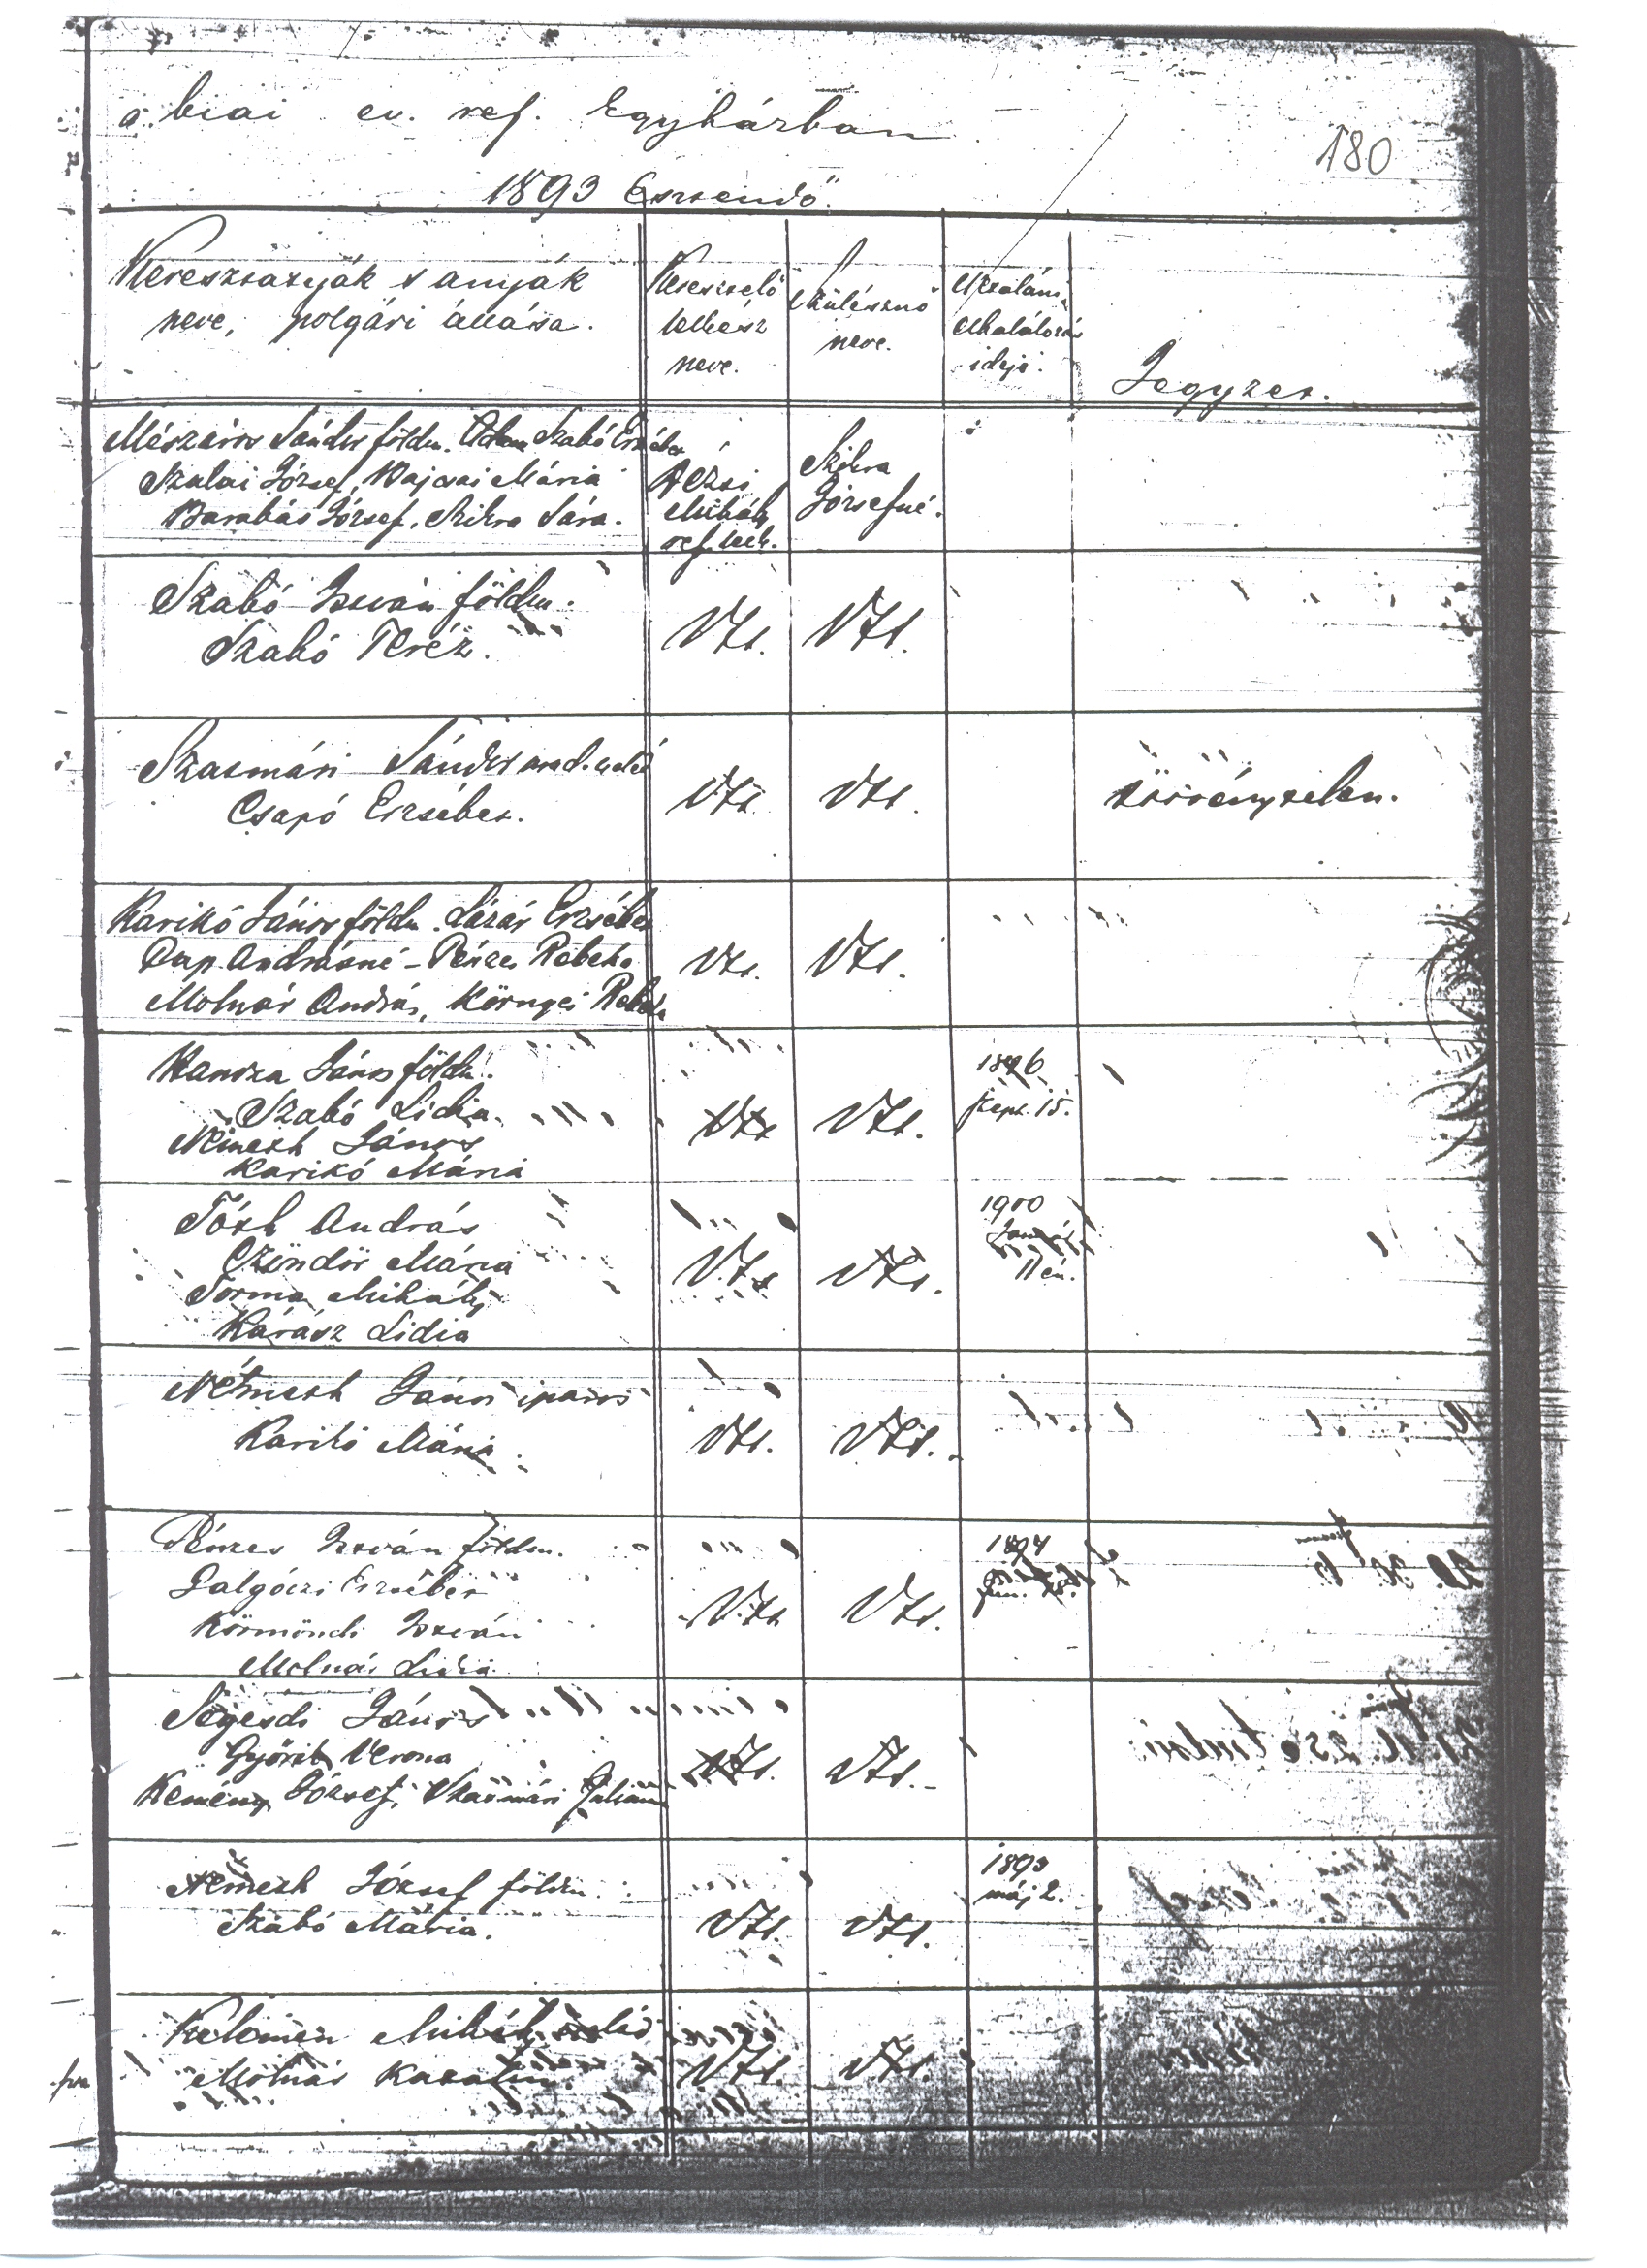 a biai ev. ref. Egyházban
180
1893 Esztendő.
Keresztatyák s anyák
neve, polgári állása.
Keresztelő
lelkész
neve.
Szülésznő
neve.
elhalálozás
ideje.
Jegyzet.
Mészáros Sándor földm. Szabó Erzsébet
Szalai József, Vajcsai Mária
Barabás József, Szikra Sára.
Rézsi
Mihály
ref. lelk.
Szikra
Józsefné.
Szabó István földm.
Szabó Teréz.
Uts. Uts.
Szatmári Sándor
Csapó Erzsébet.
Uts. Uts. törvénytelen.
Karikó János földm. Lázár Erzsébet
Pap Andrásné - Pénzes Rebeka
Molnár András, Környei Rebeka
Uts. Uts.
János földm.
Szabó Lidia.
Németh János
Karikó Mária
Uts Uts.
1896
Sept. 15.
Tóth András
Czöndör Mária
Torma Mihály
Kárász Lidia
Uts Uts.
1900
Január
11én.
Németh János iparos
Karikó Mária
Uts. Uts.
Pénzes István földm.
Galgóczi Erzsébet
Körmöndi István
Molnár Lidia
Uts Uts.
1894
Jun.
Segesdi János
Györik Verona
Kemény József, Szatmári Julianna
Uts. Uts.
Németh József földm.
Szabó Mária.
Uts. Uts.
1893
máj 2.
Kelemen Mihály
Molnár Katalin.
Uts. Uts.